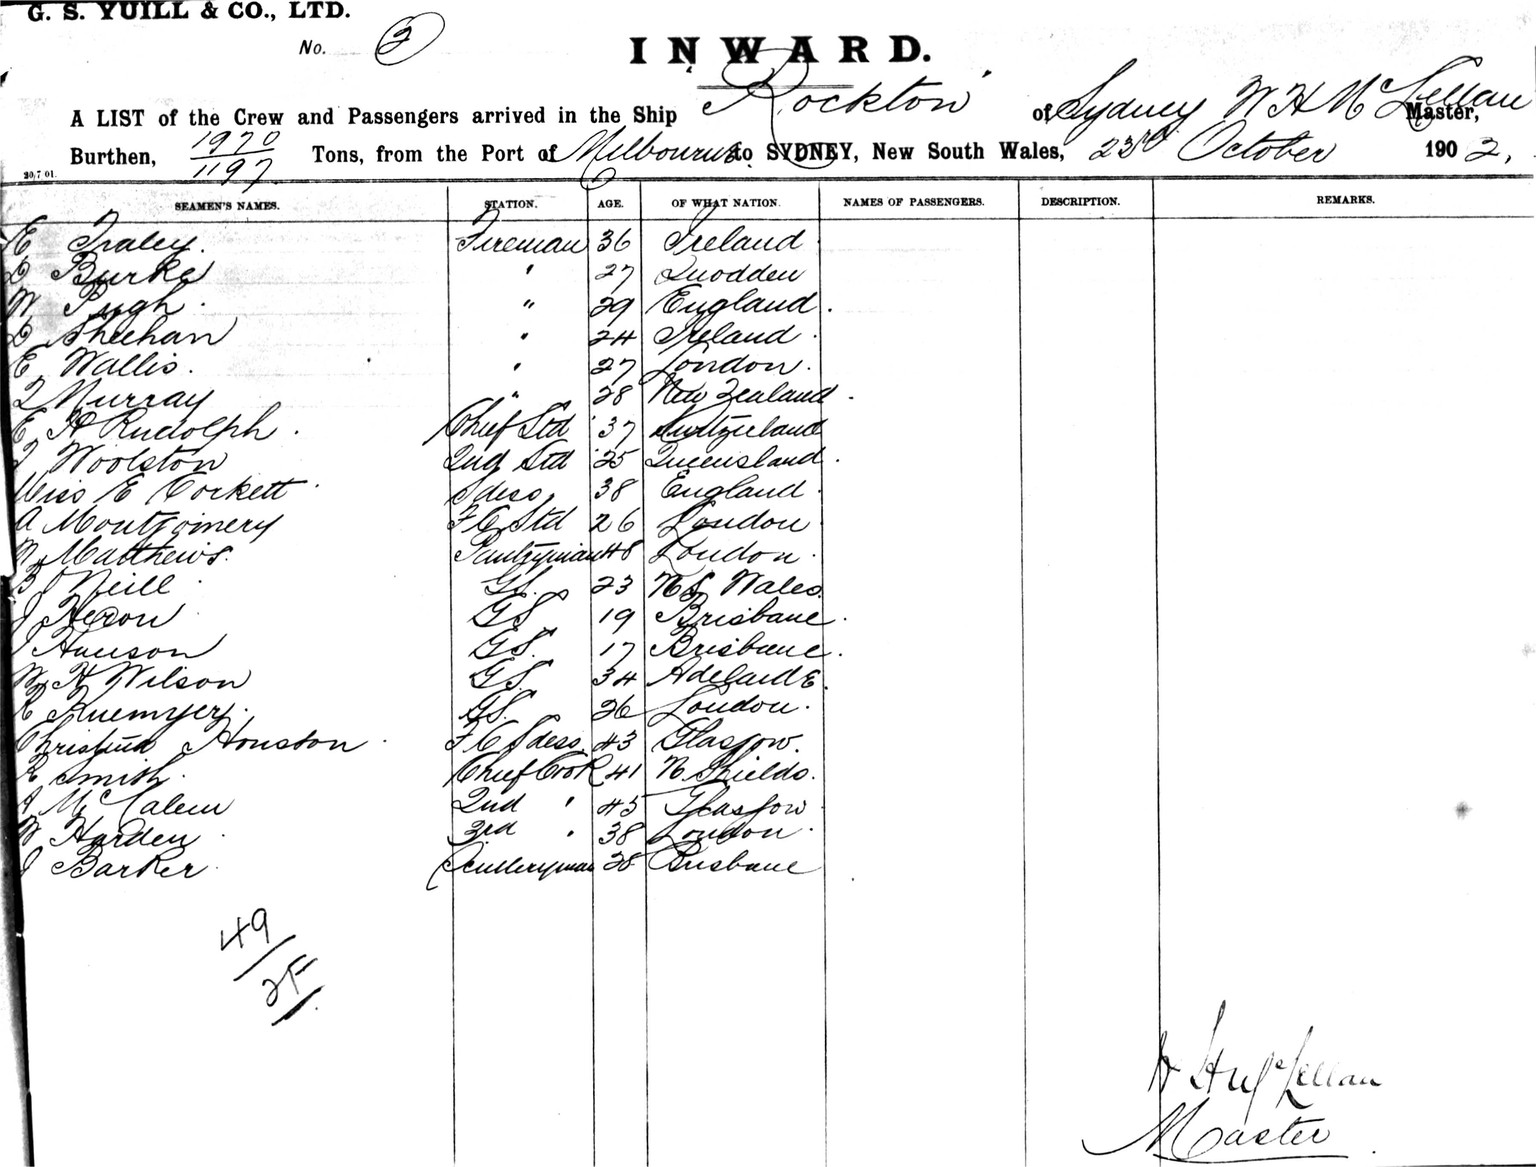 G. S. YUILL & CO., LTD.
No. 2
INWARD.
A LIST of the Crew and Passengers arrived in the Ship "Rockton" of Sydney W H McLellan Master,
Burthen, 1970/1197 Tons, from the Port of Melbourne to SYDNEY, New South Wales, 23rd October 1902.
20/7 01.
SEAMEN'S NAMES. STATION. AGE. OF WHAT NATION. NAMES OF PASSENGERS. DESCRIPTION. REMARKS.
E Traley. Fireman 36 Ireland
Burke " 27
W Pugh. " 29 England.
Sheehan " 24 Ireland.
E Wallis. " 27 London.
Murray " 28 New Zealand.
E H Rudolph. Chief Std 37 Switzerland
Woolston 2nd Std 25 Queensland.
Miss E Corkett. Sdess. 38 England.
A Montgomery F C Std 26 London
Matthews. Pantryman 48 London.
Neill. GS. 23 N S Wales.
J Heron GS 19 Brisbane.
J Hanson GS. 17 Brisbane.
W H Wilson GS 34 Adelaide.
GS. 26 London.
Christina Houston. F C Sdess. 43 Glasgow.
R Smith. Chief Cook 41 N. Shields.
2nd " 45 Glasgow
W Harden. 3rd " 38 London.
J Barker. Sculleryman 28 Brisbane
49
2F
W H McLellan
Master